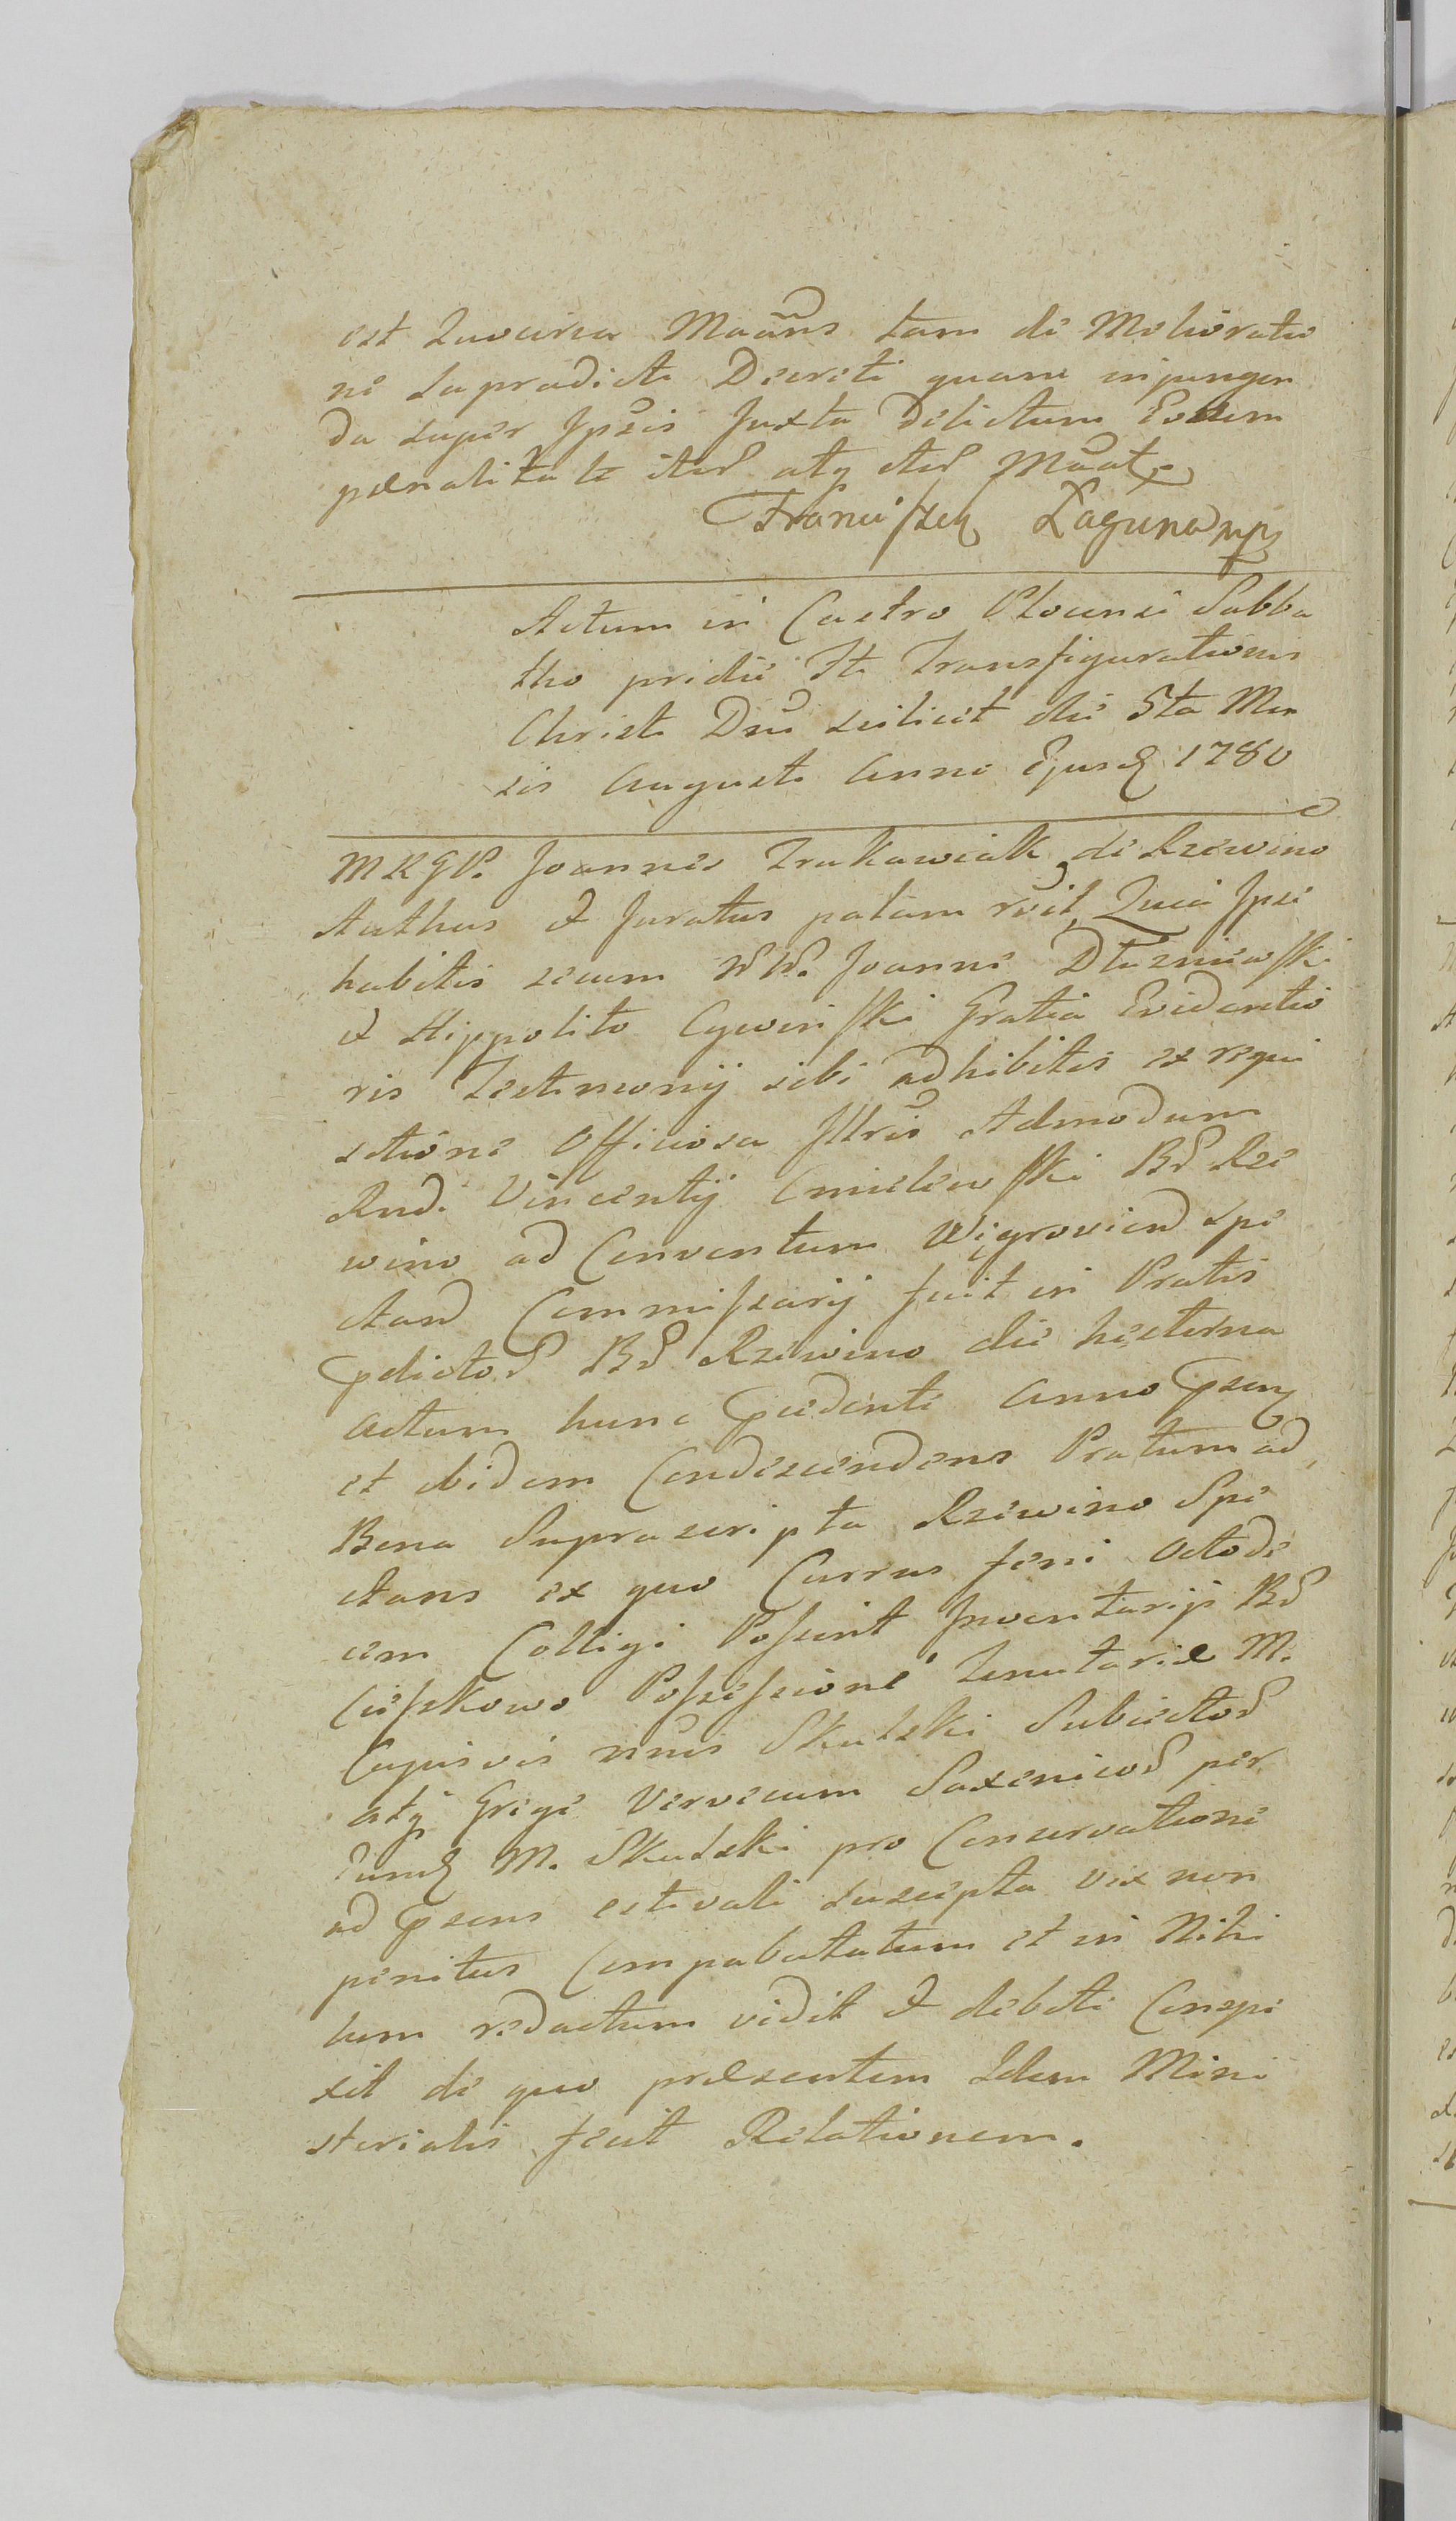 est Quocirca Maans tam de Melioratio
ne supradicti Decreti quam injungen
da super Ipsis Juxta delictum Eorum
pænalitate iterū atq iterū Māat.
Franciszek Laguna mp
Actum in Castro Plocensi Sabba
tho pridie Fti Transfigurationis
Christi Dni scilicet die 5ta Men
sis Augusti Anni Ejusd 1780
MRGP. Joannes Trukawiak de Rzewino
Authus et Juratus palam rcit Quia Ipse
habitis secum NN. Joanne Dłuzniewski
et Hippolito Cywinski Gratia Evidentio
ris Testimonij sibi adhibitis ex requi
sitione Officiosa Illris Admodum
Rndi Vincentij Cmielewski Bō Rze
wino ad Conventum Wigrovien spe
ctan Commissarij fuit in Pratis
pdictoō Bō Rzewino die hesterna
actum hunc pcedenti anno psen
et ibidem Condescendens Pratum ad
Bona Suprascripta Rzewino Spe
ctans ex quo Currus feni Octode
cem Colligi Possint Inventarijs Bō
Cieszkowo Possessione Tenutariæ M.
Cujusvis nnis Skulski Subiectoō
atq Grege Vervecum Saxenicoō per
Eund M. Skulski pro Conservatione
ad psens estivali suscepta vix non
penitus Compabulatum et in Nihi
lum redactum vidit et debite Conspe
xit de quo præsentem Idem Mini
sterialis fecit Relationem.